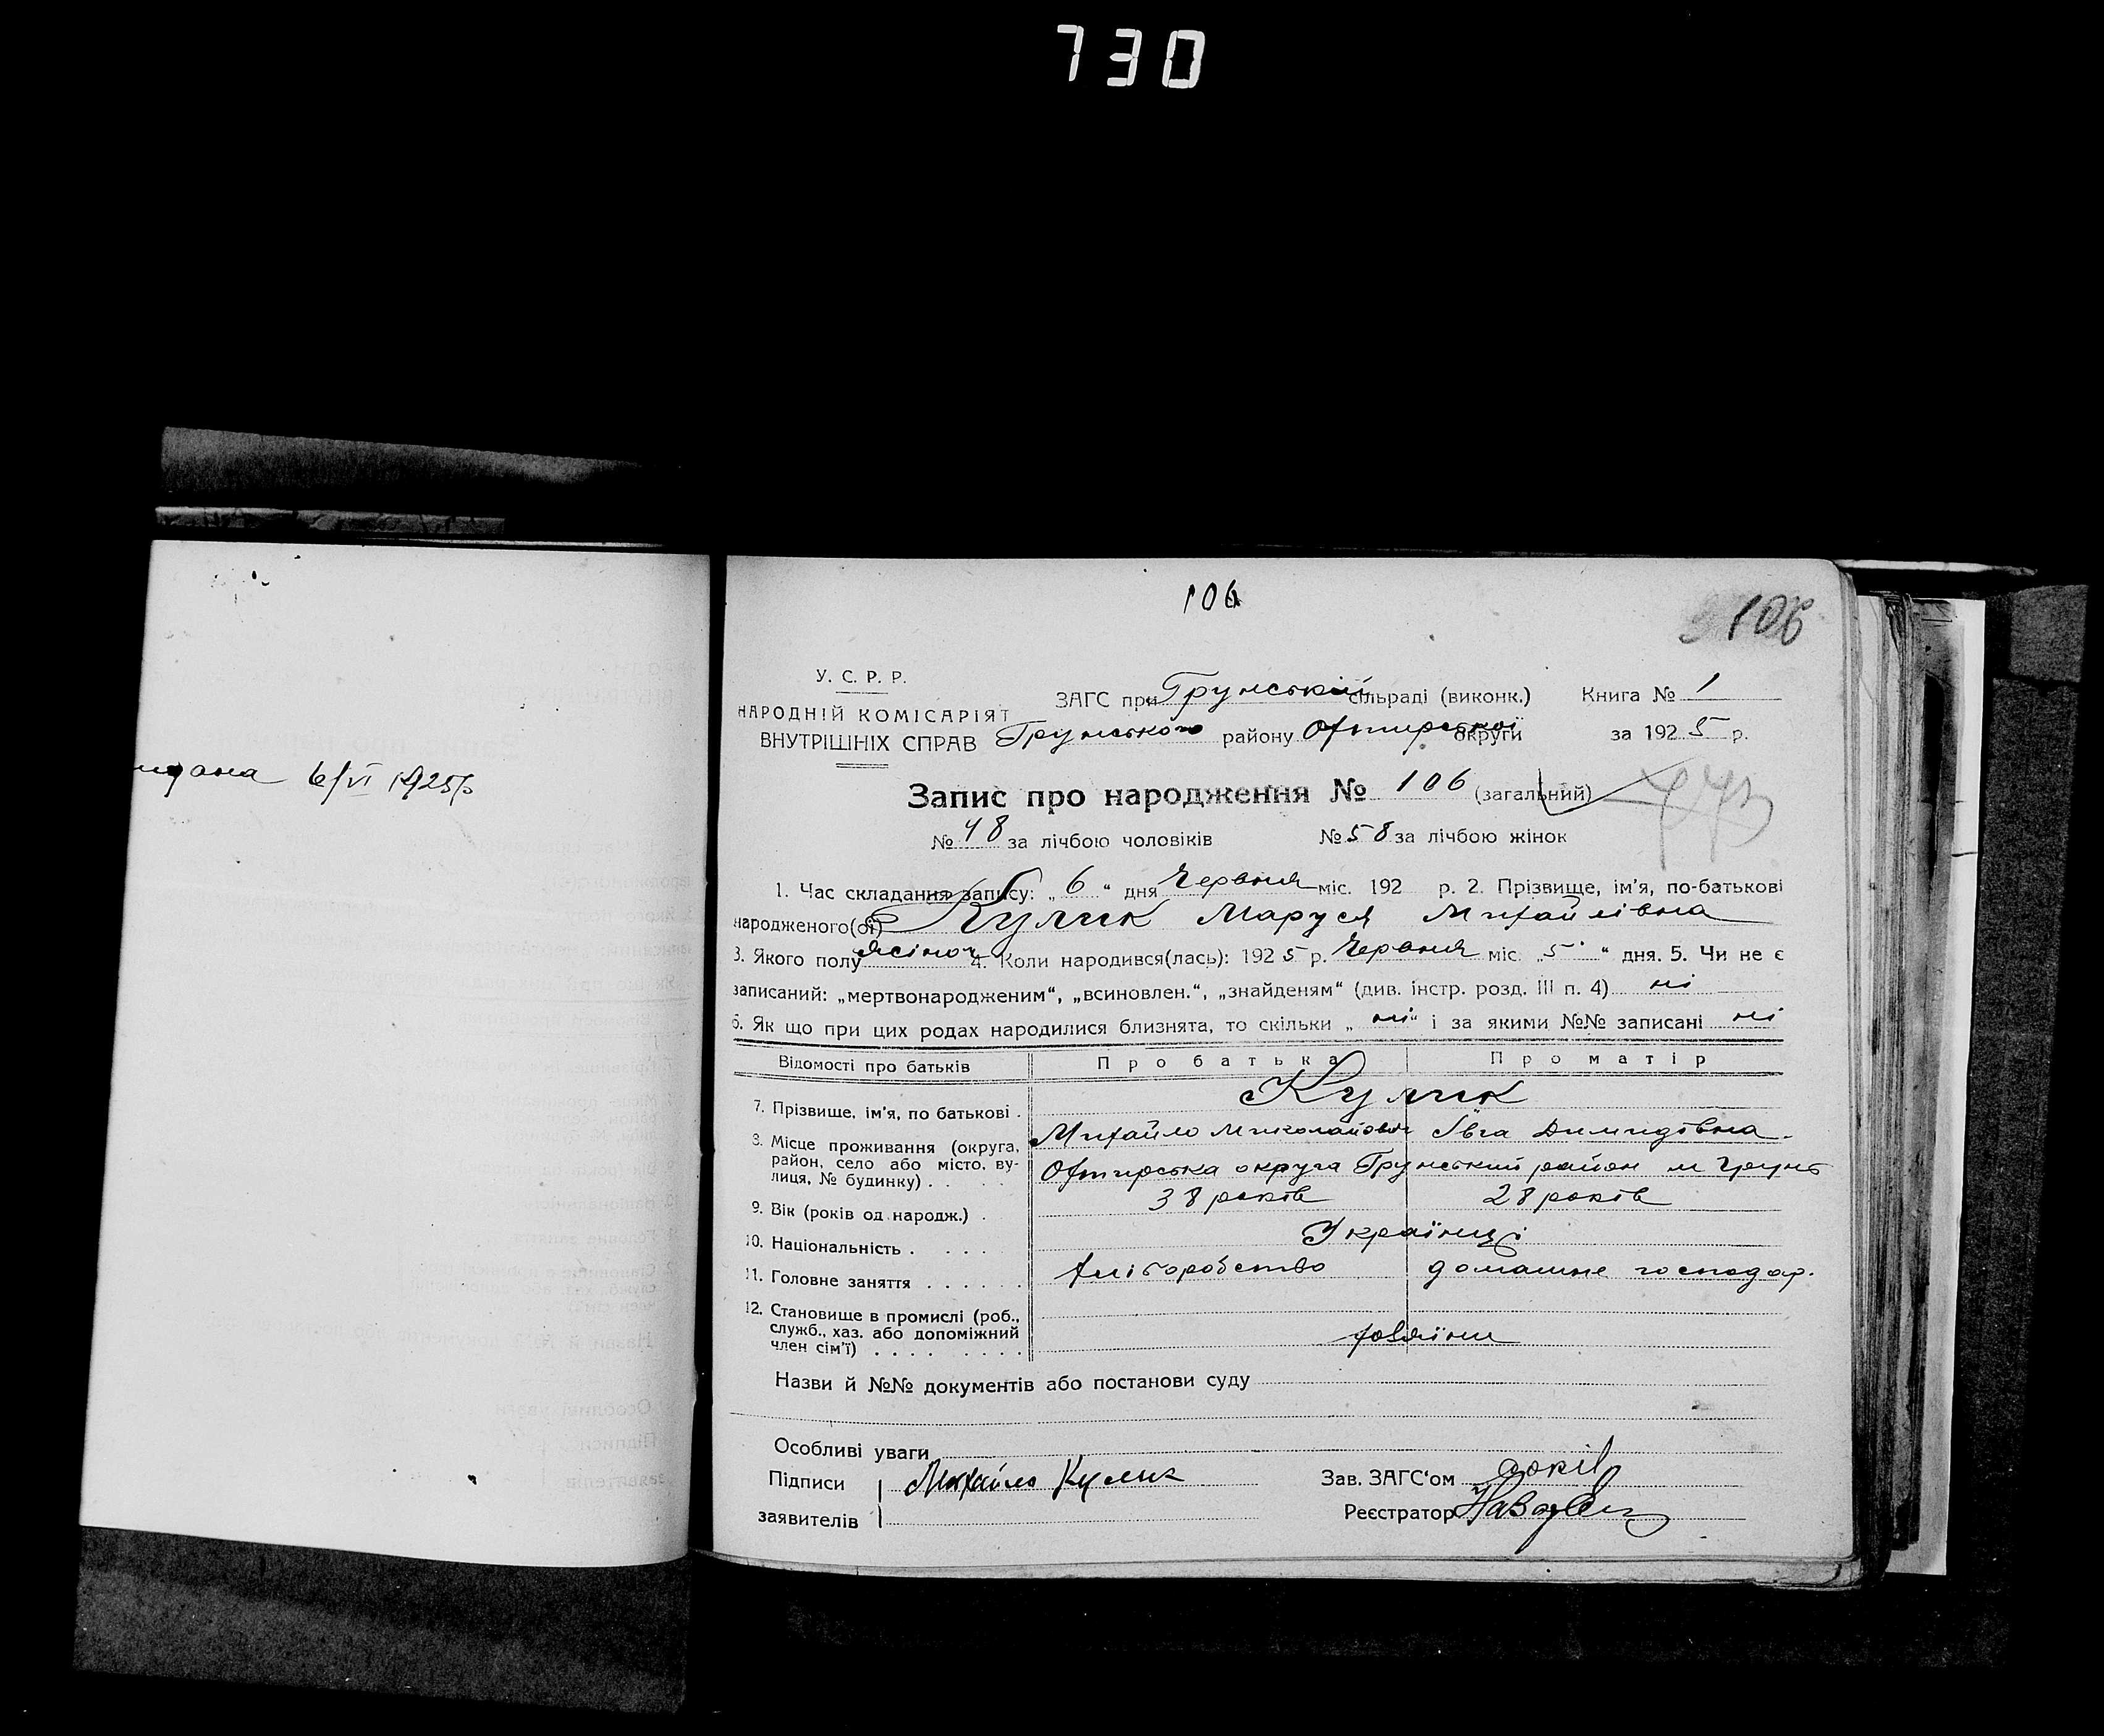 730
106
106
У. С. Р. Р.
НАРОДНІЙ КОМІСАРІЯТ
ВНУТРІШНІХ СПРАВ
ЗАГС при Грунській сільраді (виконк.) Книга № 1
Грунського району Охтирської округи за 1925 р.
видана 6/VI 1925р
Запис про народження № 106 (загальний)
№ 48 за лічбою чоловіків № 58 за лічбою жінок
1. Час складання запису: „ 6 “ дня Червня міс. 192 р. 2. Прізвище, ім'я, по-батькові
народженого(ої) Кулик Маруся Михайлівна
3. Якого полу жіноч 4. Коли народився(лась): 1925 р. Червня міс. „ 5 “ дня. 5. Чи не є
записаний: „мертвонародженим“, „всиновлен.“, „знайденям“ (див. інстр. розд. III п. 4) ні
6. Як що при цих родах народилися близнята, то скільки „ ні “ і за якими №№ записані ні
Відомості про батьків Про батька Про матір
7. Прізвище, ім'я, по батькові . Кулик
Михайло Миколайович Івга Димидівна
8. Місце проживання (округа, район, село або місто, вулиця, № будинку) . . Охтирська округа Грунський район м Грунь
9. Вік (років од народж.) . 38 років 28 років
10. Національність . . . . Українці
11. Головне заняття . . . . . . хліборобство домашне господар.
12. Становище в промислі (роб.,
служб., хаз. або допоміжний
член сім'ї) . . . . . . . . . хазяїни
Назви й №№ документів або постанови суду
Особливі уваги
Підписи Михайло Кулик Зав. ЗАГС‘ом
заявителів Реєстратор